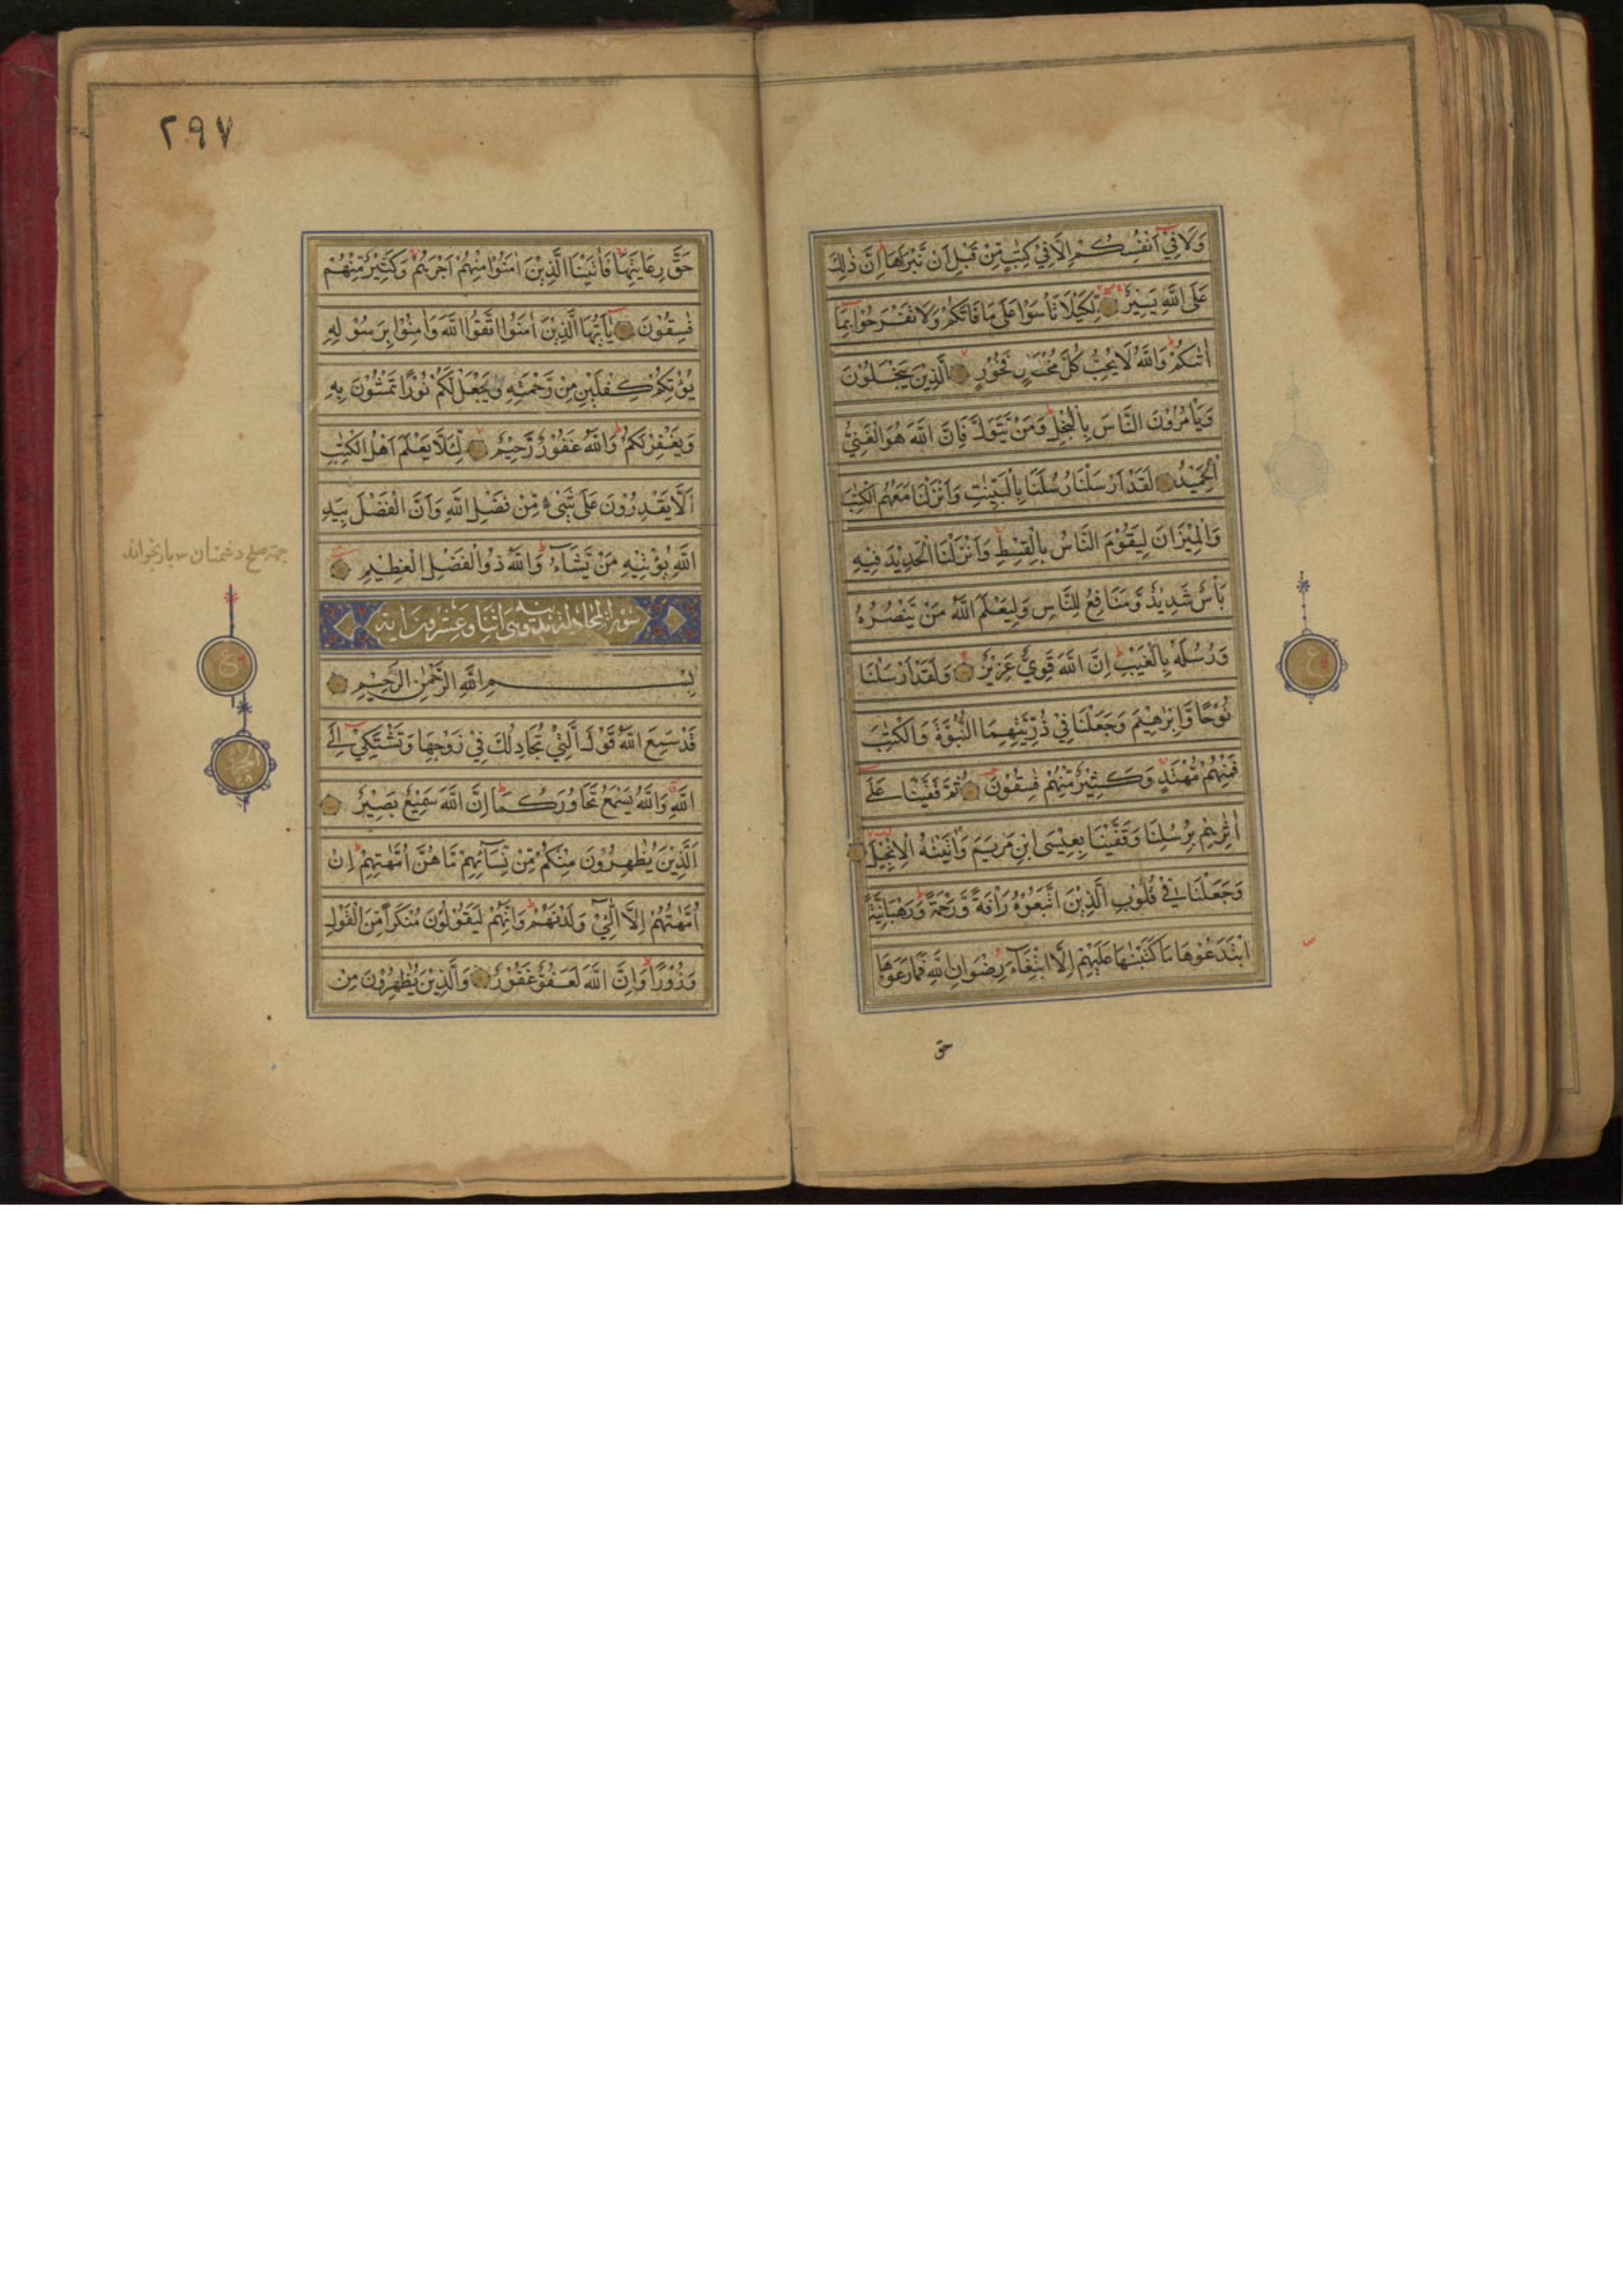 وَلَا فِيْ اَنْفُسِكُمْ اِلَّا فِيْ كِتٰبٍ مِّنْ قَبْلِ اَنْ نَّبْرَاَهَا اِنَّ ذٰلِكَ
عَلَى اللّٰهِ يَسِيْرٌ لِّكَيْلَا تَأْسَوْا عَلٰى مَا فَاتَكُمْ وَلَا تَفْرَحُوْا بِمَا
اٰتٰىكُمْ وَاللّٰهُ لَا يُحِبُّ كُلَّ مُخْتَالٍ فَخُوْرٍ الَّذِيْنَ يَبْخَلُوْنَ
وَيَأْمُرُوْنَ النَّاسَ بِالْبُخْلِ وَمَنْ يَّتَوَلَّ فَاِنَّ اللّٰهَ هُوَ الْغَنِيُّ
الْحَمِيْدُ لَقَدْ اَرْسَلْنَا رُسُلَنَا بِالْبَيِّنٰتِ وَاَنْزَلْنَا مَعَهُمُ الْكِتٰبَ
وَالْمِيْزَانَ لِيَقُوْمَ النَّاسُ بِالْقِسْطِ وَاَنْزَلْنَا الْحَدِيْدَ فِيْهِ
بَأْسٌ شَدِيْدٌ وَّمَنَافِعُ لِلنَّاسِ وَلِيَعْلَمَ اللّٰهُ مَنْ يَّنْصُرُهٗ
وَرُسُلَهٗ بِالْغَيْبِ اِنَّ اللّٰهَ قَوِيٌّ عَزِيْزٌ وَلَقَدْ اَرْسَلْنَا
نُوْحًا وَّاِبْرٰهِيْمَ وَجَعَلْنَا فِيْ ذُرِّيَّتِهِمَا النُّبُوَّةَ وَالْكِتٰبَ
فَمِنْهُمْ مُّهْتَدٍ وَكَثِيْرٌ مِّنْهُمْ فٰسِقُوْنَ ثُمَّ قَفَّيْنَا عَلٰى
اٰثَارِهِمْ بِرُسُلِنَا وَقَفَّيْنَا بِعِيْسَى ابْنِ مَرْيَمَ وَاٰتَيْنٰهُ الْاِنْجِيْلَ
وَجَعَلْنَا فِيْ قُلُوْبِ الَّذِيْنَ اتَّبَعُوْهُ رَأْفَةً وَّرَحْمَةً وَرَهْبَانِيَّةً
ابْتَدَعُوْهَا مَا كَتَبْنٰهَا عَلَيْهِمْ اِلَّا ابْتِغَآءَ رِضْوَانِ اللّٰهِ فَمَا رَعَوْهَا
حق
ع
٢٩٧
حَقَّ رِعَايَتِهَا فَاٰتَيْنَا الَّذِيْنَ اٰمَنُوْا مِنْهُمْ اَجْرَهُمْ وَكَثِيْرٌ مِّنْهُمْ
فٰسِقُوْنَ يٰاَيُّهَا الَّذِيْنَ اٰمَنُوا اتَّقُوا اللّٰهَ وَاٰمِنُوْا بِرَسُوْلِهٖ
يُؤْتِكُمْ كِفْلَيْنِ مِنْ رَّحْمَتِهٖ وَيَجْعَلْ لَّكُمْ نُوْرًا تَمْشُوْنَ بِهٖ
وَيَغْفِرْ لَكُمْ وَاللّٰهُ غَفُوْرٌ رَّحِيْمٌ لِّئَلَّا يَعْلَمَ اَهْلُ الْكِتٰبِ
اَلَّا يَقْدِرُوْنَ عَلٰى شَيْءٍ مِّنْ فَضْلِ اللّٰهِ وَاَنَّ الْفَضْلَ بِيَدِ
اللّٰهِ يُؤْتِيْهِ مَنْ يَّشَآءُ وَاللّٰهُ ذُو الْفَضْلِ الْعَظِيْمِ
سورة المجادلة مدنية وهي اثنا وعشرون اية
بِسْمِ اللّٰهِ الرَّحْمٰنِ الرَّحِيْمِ
قَدْ سَمِعَ اللّٰهُ قَوْلَ الَّتِيْ تُجَادِلُكَ فِيْ زَوْجِهَا وَتَشْتَكِيْ اِلَى
اللّٰهِ وَاللّٰهُ يَسْمَعُ تَحَاوُرَكُمَا اِنَّ اللّٰهَ سَمِيْعٌ بَصِيْرٌ
اَلَّذِيْنَ يُظٰهِرُوْنَ مِنْكُمْ مِّنْ نِّسَآئِهِمْ مَّا هُنَّ اُمَّهٰتِهِمْ اِنْ
اُمَّهٰتُهُمْ اِلَّا الّٰٓئِيْ وَلَدْنَهُمْ وَاِنَّهُمْ لَيَقُوْلُوْنَ مُنْكَرًا مِّنَ الْقَوْلِ
وَزُوْرًا وَاِنَّ اللّٰهَ لَعَفُوٌّ غَفُوْرٌ وَالَّذِيْنَ يُظٰهِرُوْنَ مِنْ
ع